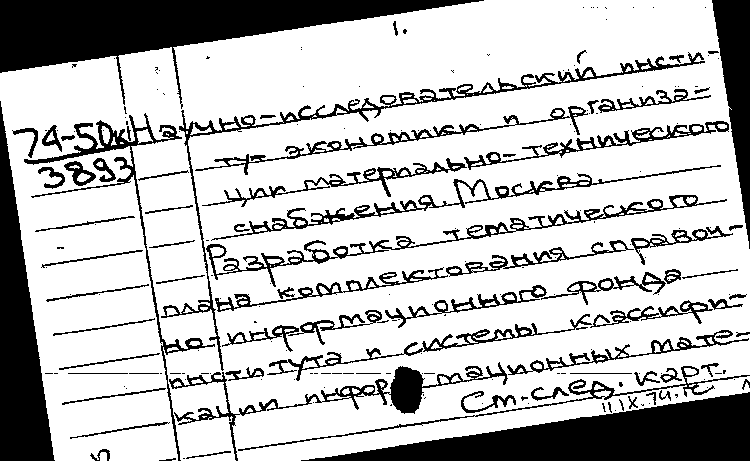 1.
74-50к Научно-исследовательский инсти-
3893 ту- экономики и организа-
ции материально-технического
снабжения. Москва.
Разработка тематического
плана комплектования справоч-
но-информационного фонда
института и системы классифи-
кации информационных мате-
См. след. карт.